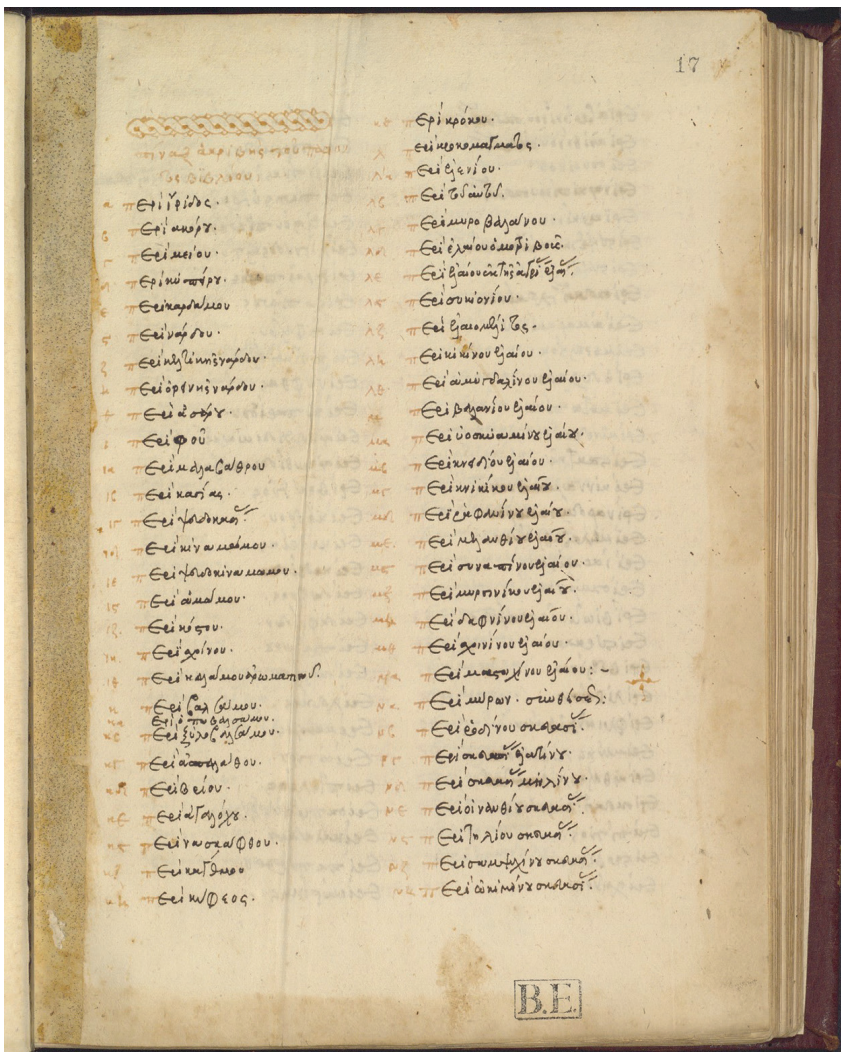 17
πίναξ ἀκριβὴς τοῦ
βιβλίου
α περὶ ἴριδος.
β περὶ ἀκόρου.
γ περὶ μείου.
δ περὶ κυπέρου.
ε περὶ καρδαμου
ς περὶ νάρδου.
ζ περὶ κελτικῆς νάρδου.
η περὶ ὀρεινῆς νάρδου.
θ περὶ ἀσάρου.
ι περὶ φοῦ
ια περὶ μαλαβάθρου
ιβ περὶ κασίας.
ιγ περὶ ψευδοκασί
ιδ περὶ κιναμώμου.
ιε περὶ ψευδοκιναμώμου.
ις περὶ ἀμώμου.
ιζ περὶ κόστου.
ιη περὶ σχίνου.
ιθ περὶ καλάμου ἀρωματικοῦ.
κ περὶ βαλσάμου.
κα περὶ ὀποβαλσάμου.
κβ περὶ ξυλοβαλσάμου.
κγ περὶ ἀσπαλάθου.
κδ περὶ βρύου.
κε περὶ ἀγαλόχου.
κς περὶ νασκάφθου.
κζ περὶ καγκάμου
κη περὶ κύφεος.
κθ περὶ κρόκου.
λ περὶ κροκομάγματος.
λα περὶ ἑλενίου.
λβ περὶ τοῦ αὐτοῦ.
λγ περὶ μυροβαλάνου.
λδ περὶ ἐλαίου ὀμοτριβοῦς.
λε περὶ ἐλαίου ἐκ τῆς ἀγρί ἐλαί
λς περὶ συκιονίου.
λζ περὶ ἐλαιομέλιτος.
λη περὶ κικίνου ἐλαίου.
λθ περὶ ἀμυγδαλίνου ἐλαίου.
μ περὶ βαλανίνου ἐλαίου.
μα περὶ ὑοσκυαμίνου ἐλαίου.
μβ περὶ κνιδίου ἐλαίου.
μγ περὶ κνικίνου ἐλαίου.
μδ περὶ ῥαφανίνου ἐλαίου.
με περὶ μελανθίου ἐλαίου.
μς περὶ συναπίνου ἐλαίου.
μζ περὶ μυρσινίνου ἐλαίου.
μη περὶ δαφνίνου ἐλαίου.
μθ περὶ σχινίνου ἐλαίου.
περὶ μαστιχίνου ἐλαίου:
να περὶ μύρων.
νβ περὶ ῥοδίνου σκευασί
νγ περὶ σκευασί ἐλατίνου.
νδ περὶ σκευασί μηλίνου.
νε περὶ οἰνανθίνου σκευασί
νς περὶ τηλίνου σκευασί
νζ περὶ σαμψυχίνου σκευασί
νη περὶ ὠκιμίνου σκευασί
B.E.